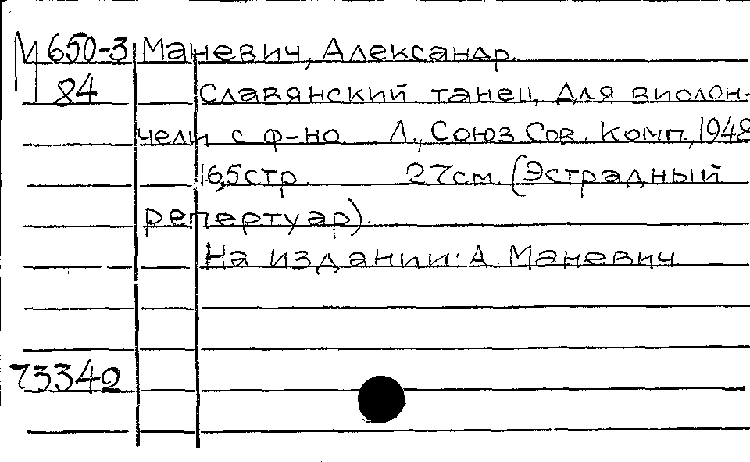 М 650-3 Маневич, Александр.
84 Славянский танец, Для виолон-
чели с ф-но. Л., Союз Сов. Комп., 1948
16,5стр. 27см. (Эстрадный
репертуар).
На издании: А. Маневич
73342